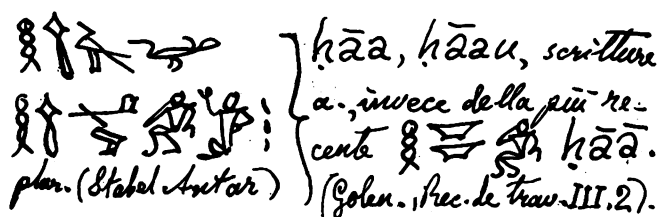 plur. (Stabel Antar)
ḥāa, ḥāau, scritture
a., invece della più re-
cente ḥāā.
(Golen., Rec. de trav. III. 2).